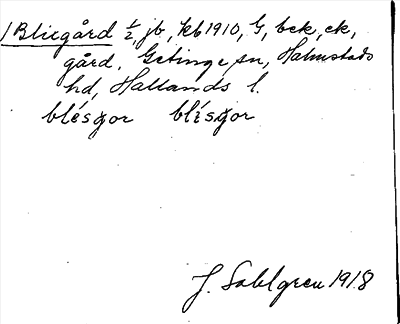 /Blicgård ½, jb, kb 1910, G, bek, ek,
gård, Getinge sn, Halmstads
hd, Hallands l.
blésgor blísgor
J. Sahlgren 1918